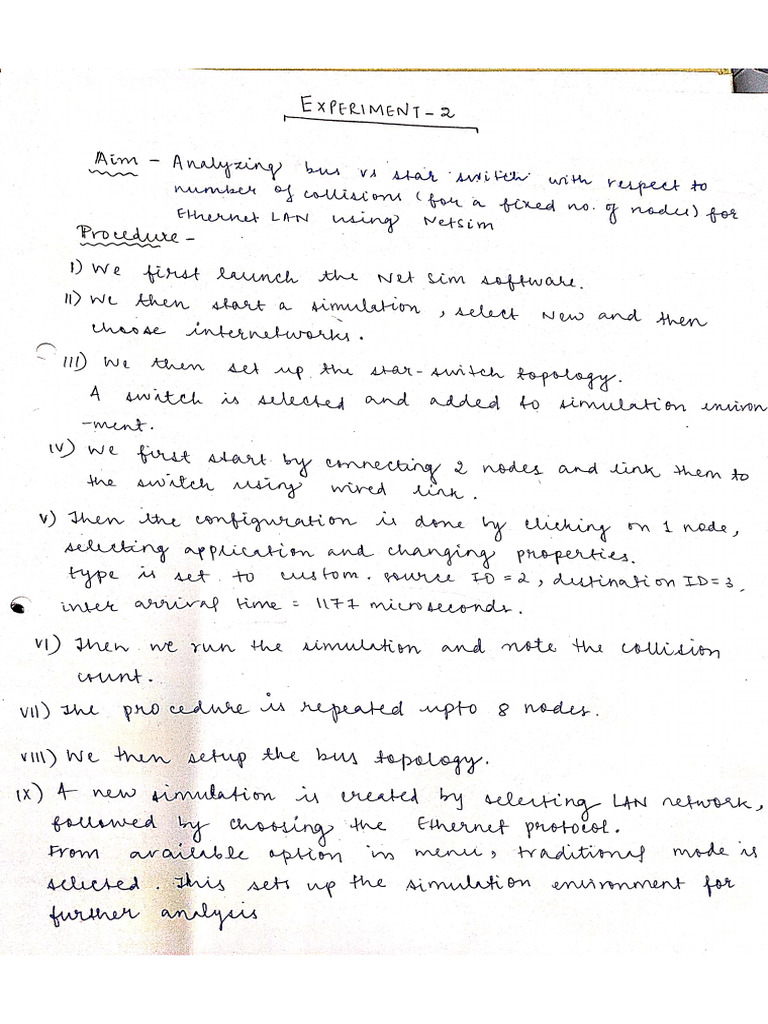 EXPERIMENT - 2
Aim - Analyzing bus vs star switch with respect to
number of collisions (for a fixed no. of nodes) for
Ethernet LAN using NetSim
Procedure -
I) We first launch the Net Sim software.
II) We then start a simulation, select New and then
choose internetworks.
III) We then set up the star-switch topology.
A switch is selected and added to simulation environ
-ment.
IV) We first start by connecting 2 nodes and link them to
the switch using wired link.
V) Then the configuration is done by clicking on 1 node,
selecting application and changing properties.
type is set to custom. source ID = 2, destination ID = 3,
inter arrival time = 1177 microseconds.
VI) Then we run the simulation and note the collision
count.
VII) The procedure is repeated upto 8 nodes.
VIII) We then setup the bus topology.
IX) A new simulation is created by selecting LAN network,
followed by choosing the Ethernet protocol.
From available option in menu, traditional mode is
selected. This sets up the simulation environment for
further analysis